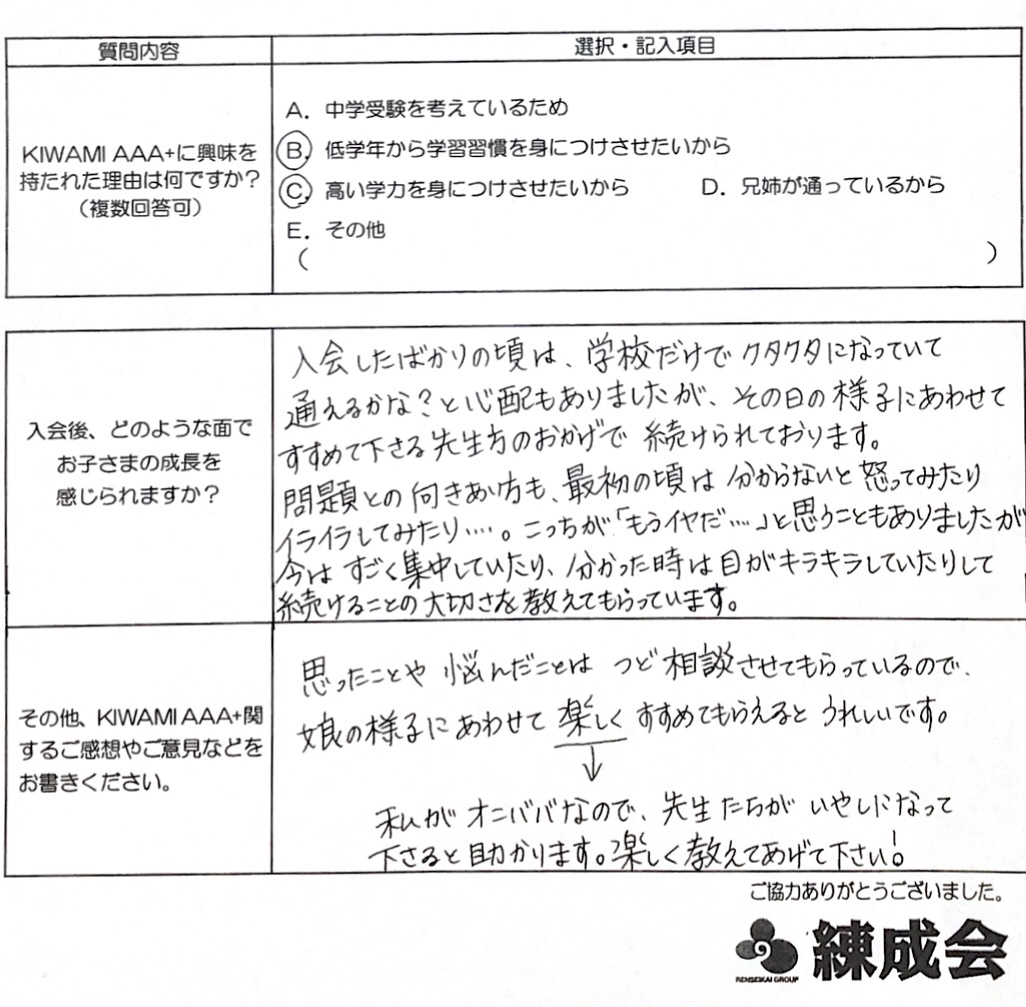 質問内容
選択・記入項目
KIWAMI AAA+に興味を
持たれた理由は何ですか?
(複数回答可)
A. 中学受験を考えているため
B. 低学年から学習習慣を身につけさせたいから
C. 高い学力を身につけさせたいから D. 兄姉が通っているから
E. その他
( )
入会後、どのような面で
お子さまの成長を
感じられますか?
入会したばかりの頃は、学校だけでクタクタになっていて
通えるかな?と心配もありましたが、その日の様子にあわせて
すすめて下さる先生方のおかげで 続けられております。
問題との向きあい方も、最初の頃は 分からないと怒ってみたり
イライラしてみたり….。こっちが「もうイヤだ….」と思うこともありましたが
今は すごく集中していたり、分かった時は目がキラキラしていたりして
続けることの大切さを教えてもらっています。
その他、KIWAMI AAA+関
するご感想やご意見などを
お書きください。
思ったことや 悩んだことは つど相談させてもらっているので、
娘の様子にあわせて 楽しく すすめてもらえると うれしいです。
↓
私が オニババなので、先生たちが いやしになって
下さると助かります。楽しく教えてあげて下さい!
ご協力ありがとうございました。
RENSEIKAI GROUP
練成会